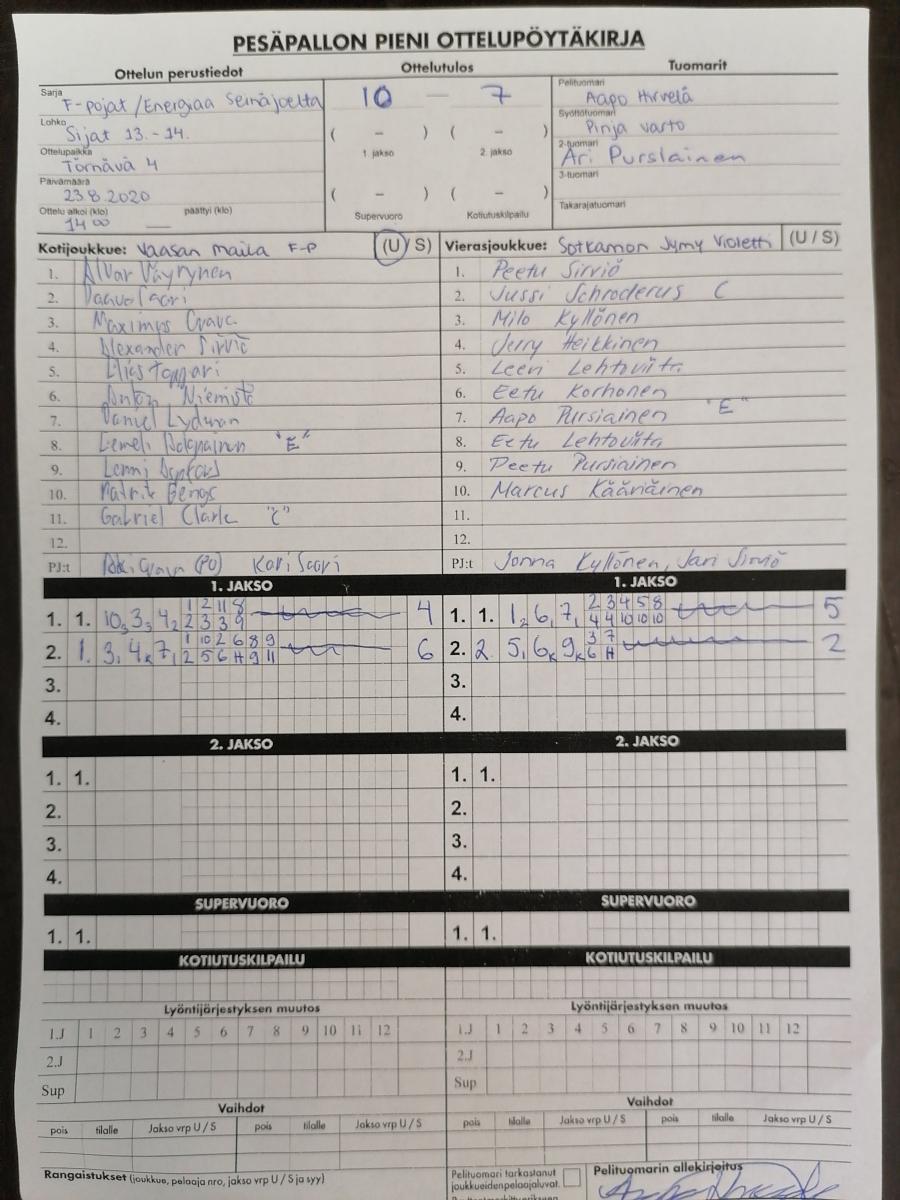 PESÄPALLON PIENI OTTELUPÖYTÄKIRJA
Ottelun perustiedot
Ottelutulos
Tuomarit
Sarja F-pojat /Energiaa Seinäjoelta
Lohko Sijat 13.-14.
Ottelupaikka Törnävä 4
Päivämäärä 23.8.2020
Ottelu alkoi (klo) 14 00 päättyi (klo) —
10 — 7
( – ) ( – )
1. jakso 2. jakso
( – ) ( – )
Supervuoro Kotiutuskilpailu
Pelituomari Aapo Hirvelä
Syöttötuomari Pinja Varto
2-tuomari Ari Pursiainen
3-tuomari
Takarajatuomari
Kotijoukkue: Vaasan Maila F-P (U/S)
1. Alvar Väyrynen
2. Paavo Saari
3. Maximus
4. Alexander Sirviö
5. Elias Toppari
6. Anton Niemistö
7. Daniel Lydman
8. Eemeli "E"
9. Lenni
10. Patrik Bengs
11. Gabriel Clark "C"
12.
PJ:t (PO) Kari Saari
Vierasjoukkue: Sotkamon Jymy Violetti (U / S)
1. Peetu Sirviö
2. Jussi Schroderus C
3. Milo Kyllönen
4. Jerry Heikkinen
5. Leevi Lehtoviita
6. Eetu Korhonen
7. Aapo Pursiainen "E"
8. Eetu Lehtoviita
9. Peetu Pursiainen
10. Marcus Kääriäinen
11.
12.
PJ:t Jonna Kyllönen, Jari Sirviö
1. JAKSO
1. 1. 10, 3, 4 1 2 11 8 4
2 3 3 9
2. 1. 3, 4 7 1 10 2 6 8 9 6
2 5 6 H 9 11
3.
4.
1. JAKSO
1. 1. 1, 6, 7, 2 3 4 5 8 5
4 4 10 10 10
2. 2. 5, 6 9 3 7 2
6 H
3.
4.
2. JAKSO
1. 1.
2.
3.
4.
2. JAKSO
1. 1.
2.
3.
4.
SUPERVUORO
1. 1.
SUPERVUORO
1. 1.
KOTIUTUSKILPAILU
KOTIUTUSKILPAILU
Lyöntijärjestyksen muutos
1.J 1 2 3 4 5 6 7 8 9 10 11 12
2.J
Sup
Lyöntijärjestyksen muutos
1.J 1 2 3 4 5 6 7 8 9 10 11 12
2.J
Sup
Vaihdot
pois tilalle Jakso vrp U / S pois tilalle Jakso vrp U / S
Vaihdot
pois tilalle Jakso vrp U / S pois tilalle Jakso vrp U / S
Rangaistukset (joukkue, pelaaja nro, jakso vrp U / S ja syy)
Pelituomari tarkastanut
joukkueidenpelaajaluvat.
Pelituomarin allekirjoitus